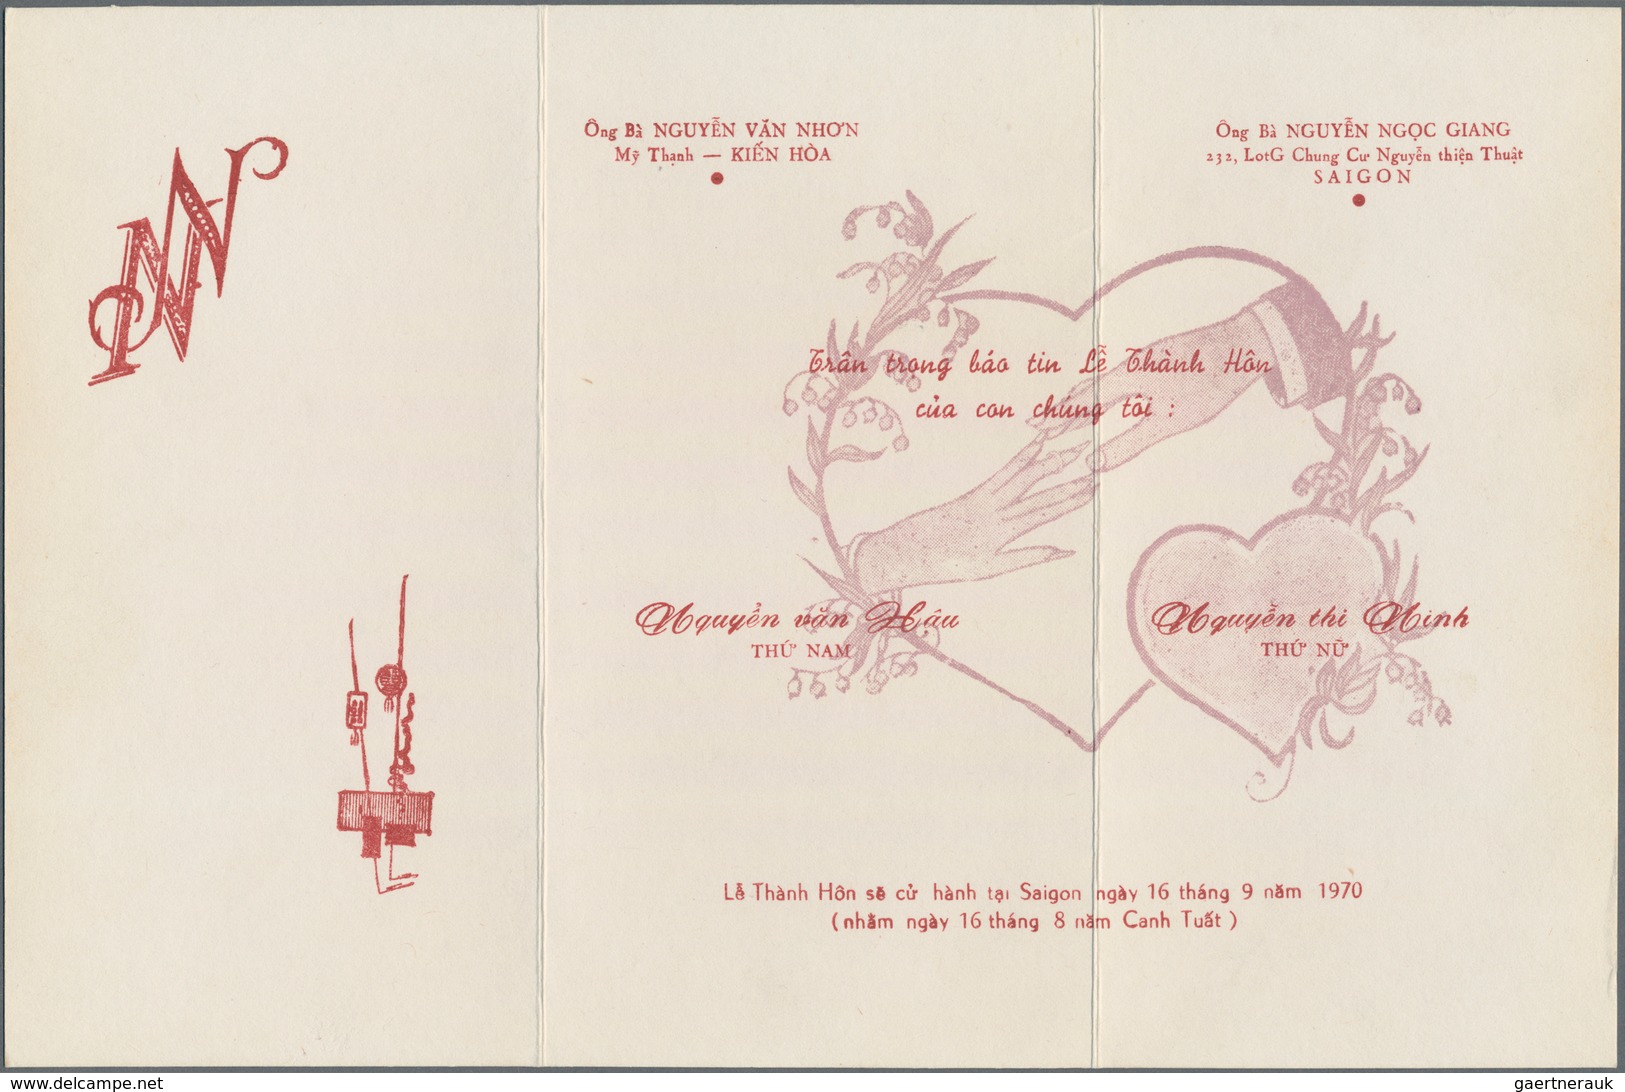 NN
Ông Bà NGUYỄN VĂN NHƠN
Mỹ Thạnh — KIẾN HÒA
Ông Bà NGUYỄN NGỌC GIANG
232, LotG Chung Cư Nguyễn thiện Thuật
SAIGON
Trân trọng báo tin Lễ Thành Hôn
của con chúng tôi :
Nguyễn văn Hâu
THỨ NAM
Nguyễn thi Ninh
THỨ NỮ
Lễ Thành Hôn sẽ cử hành tại Saigon ngày 16 tháng 9 năm 1970
( nhằm ngày 16 tháng 8 năm Canh Tuất )
www.delcampe.net
gaertnerauk